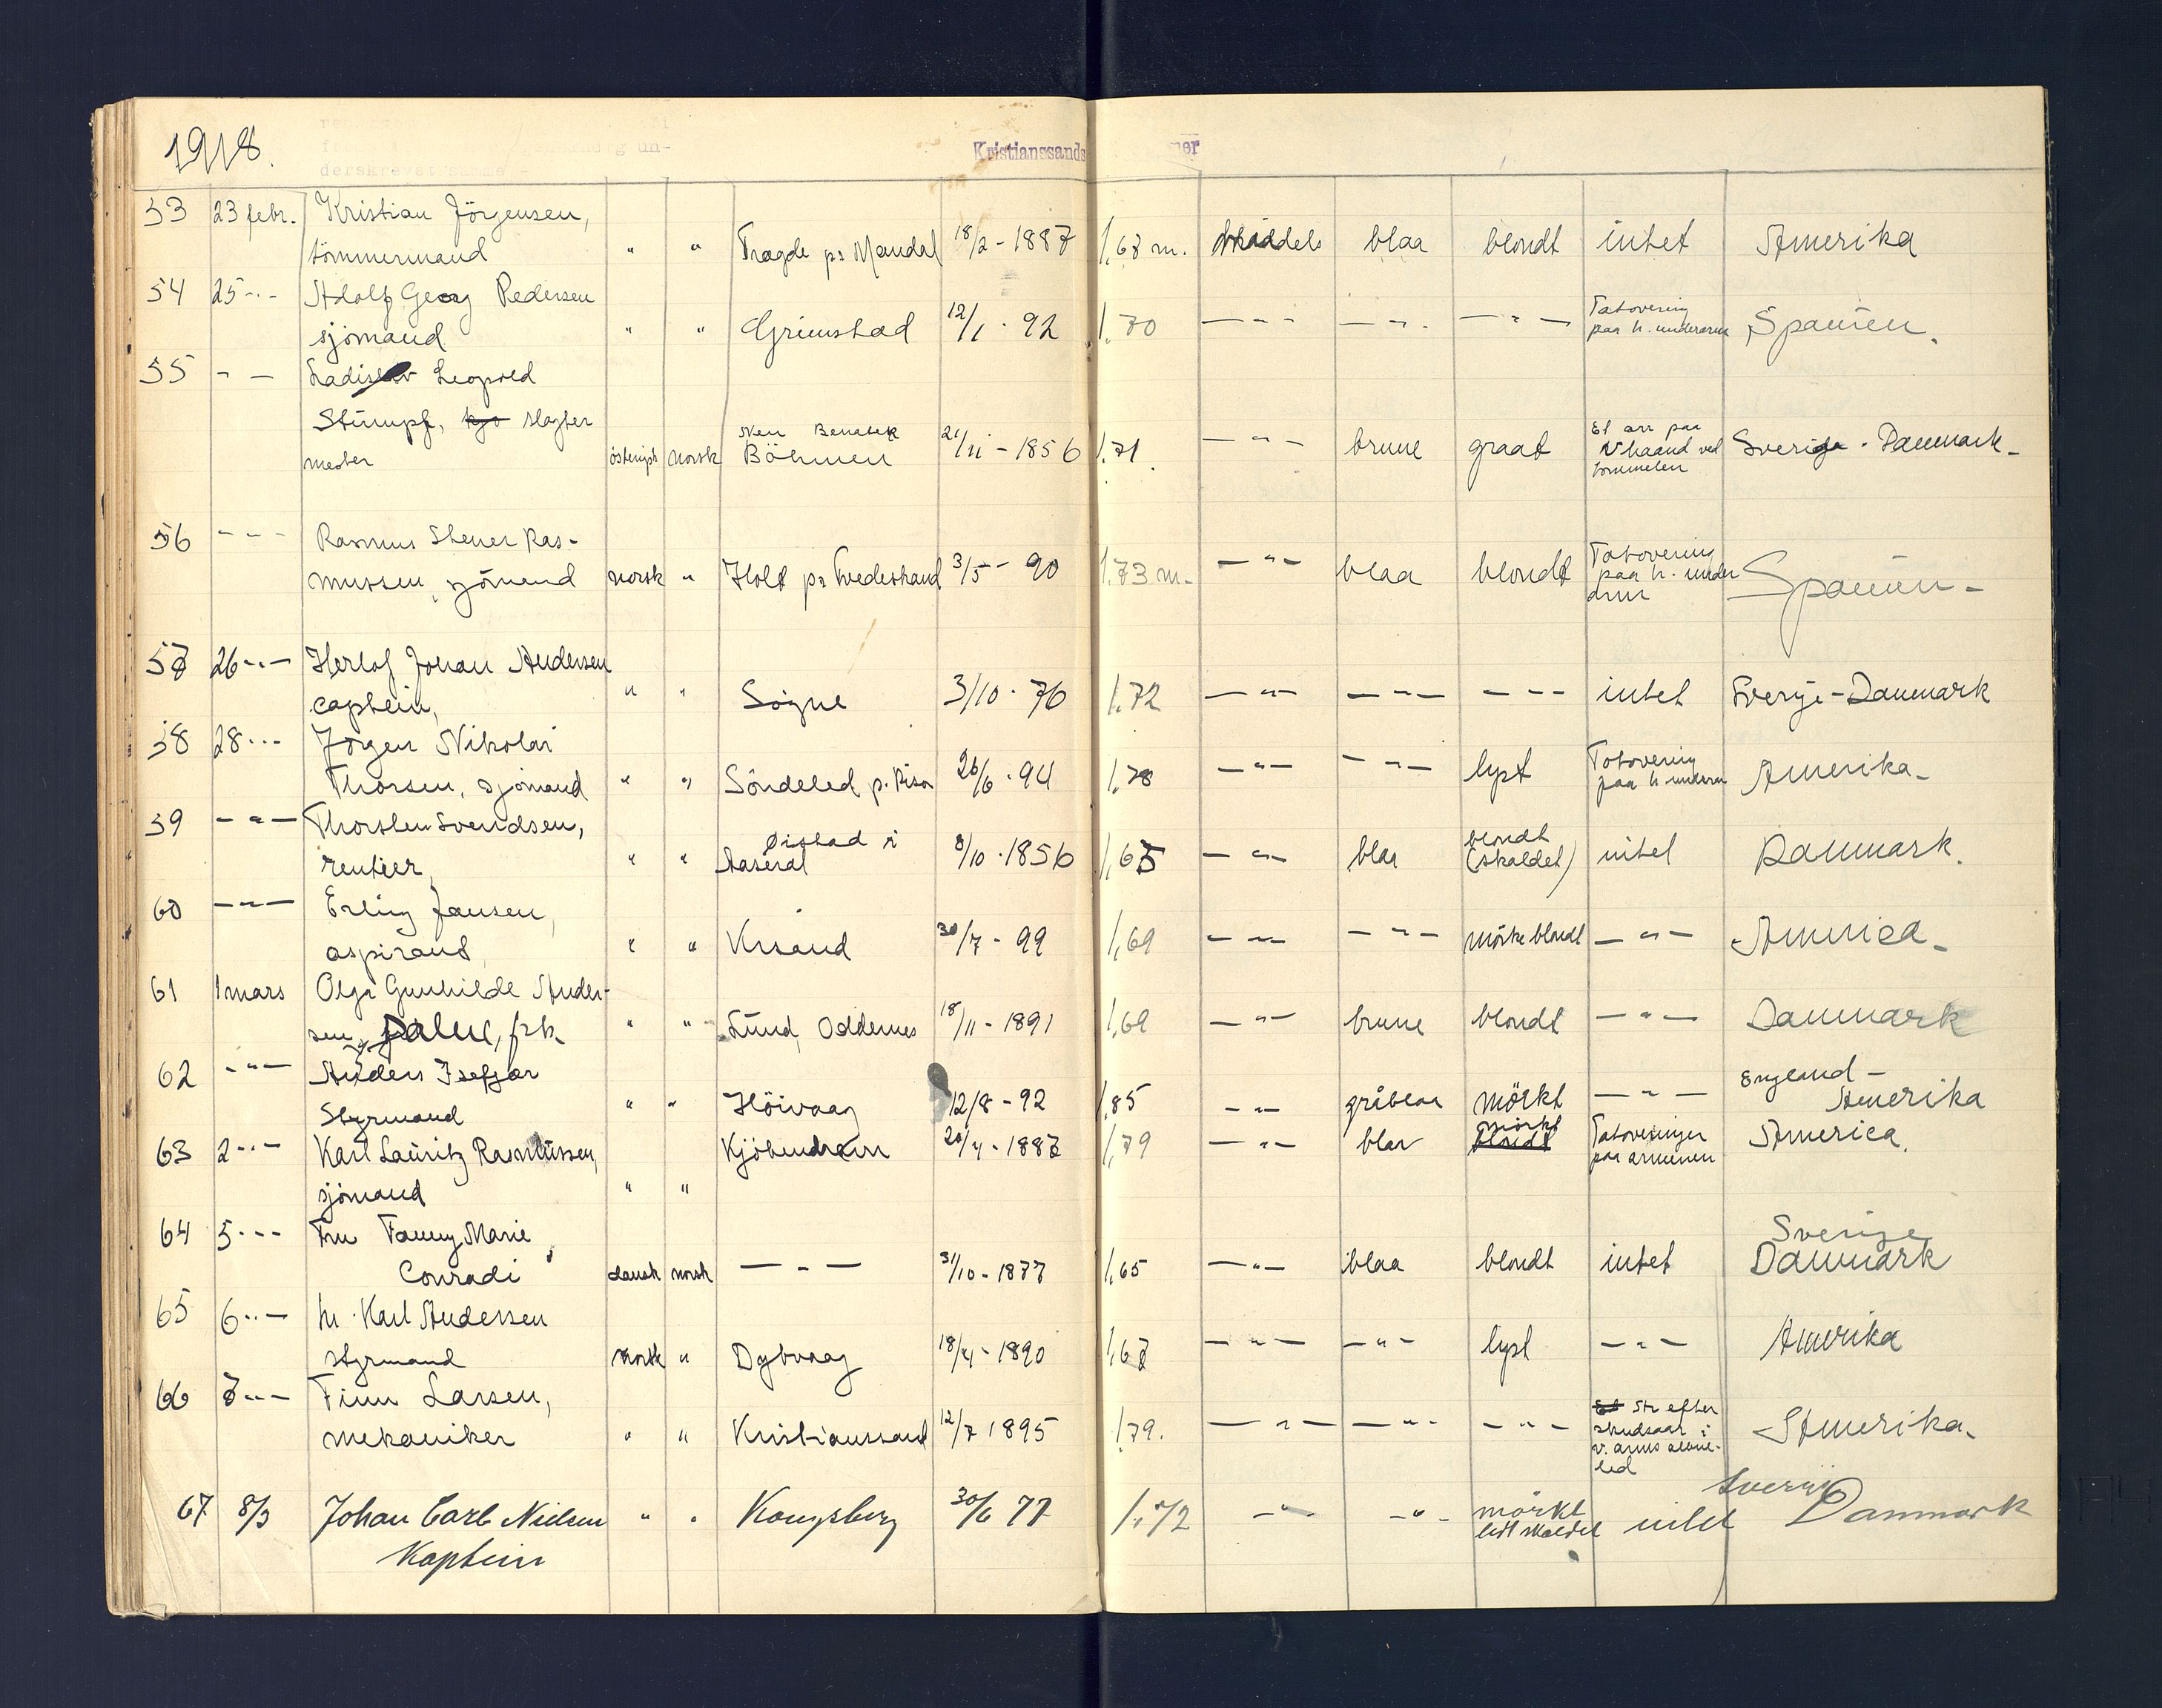 1918.
Kristianssands
53 23 febr. Kristian Jörgensen,
tömmermand " " Tregde pr Mandal 18/2 - 1887 1,68 m. Middels blaa blondt intet Amerika
54 25 -"- Adolf Georg Pedersen
sjömand " " Grimstad 12/1 - 92 1.70 -"- -"- -"- Tatovering paa h. underarm Spanien.
55 - - Ladislav Leopold
Stümpf, slagter
mester österrigsk norsk Neu Benatek Böhmen 21/11 - 1856 1.71. -"- brune graat Et arr paa V haand ved tommelen Sverige - Danmark -
56 - - - Rasmus Stener Ras-
mussen, sjömand norsk " Holt pr Tvedestrand 3/5 - 90 1.73 m. -"- blaa blondt Tatovering paa h. under arm Spanien -
57 26 -"- Herlof Johan Andersen
captein, " " Sögne 3/10 - 76 1.72 -"- -"- - - - intet Sverige - Danmark
58 28 -"- Jörgen Nikolai
Thorsen, sjömand " " Söndeled p. Risør 26/6 - 94 1,78 -"- -"- lyst Tatovering paa h underarm Amerika -
59 -"- Thorsten Svendsen,
rentier, " " Øistad i Aaseral 8/10 - 1856 1,65 -"- blaa blondt (skaldet) intet Danmark.
60 -"- Erling Jansen,
aspirant, " " Krsand 30/7 - 99 1,69 -"- -"- mörke blondt -"- America -
61 1 mars Olga Gunhilde Ander-
sen, frk. " " Lund, Oddernes 18/11 - 1891 1,69 -"- brune blondt -"- Danmark
62 -"- Anders Isefjær
Styrmand " " Höivaag 12/8 - 92 1.85 -"- gråblaa mörkt -"- England - Amerika
63 2 -"- Karl Lauritz Rasmussen, Kjöbenhavn 20/4 - 1887 1,79 -"- blaa mörkt blondt Tatoveringer paa armenen America.
sjömand " "
64 5 -"- Fru Fanny Marie
Conradi dansk norsk - " - 31/10 - 1877 1,65 -"- blaa blondt intet Sverige Danmark
65 6 -"- hr. Karl Andersen
styrmand norsk " Dybvaag 18/4 - 1890 1,67 -"- -"- lyst -"- Amerika
66 7 -"- Finn Larsen,
mekaniker " " Kristianssand 12/7 1895 1.79. -"- -"- -"- efter skudsaar i v. arms albue- led Amerika -
67 8/3 Johan Carl Nielsen " " Kongsberg 30/6 77 1.72 -"- -"- mörkt lidt skaldet intet Sverige Danmark
Kaptein